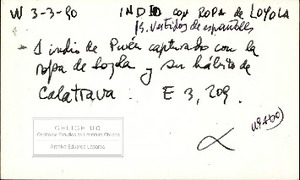 W 3-3-90 INDIO con ROPA de LOYOLA
Vestidos de españoles
* 1 indio de Purén capturado con la
ropa de Loyola y su hábito de
Calatrava : E 3, 209.
(USADO)
CELICH UC
Centro de Estudios de Literatura Chilena